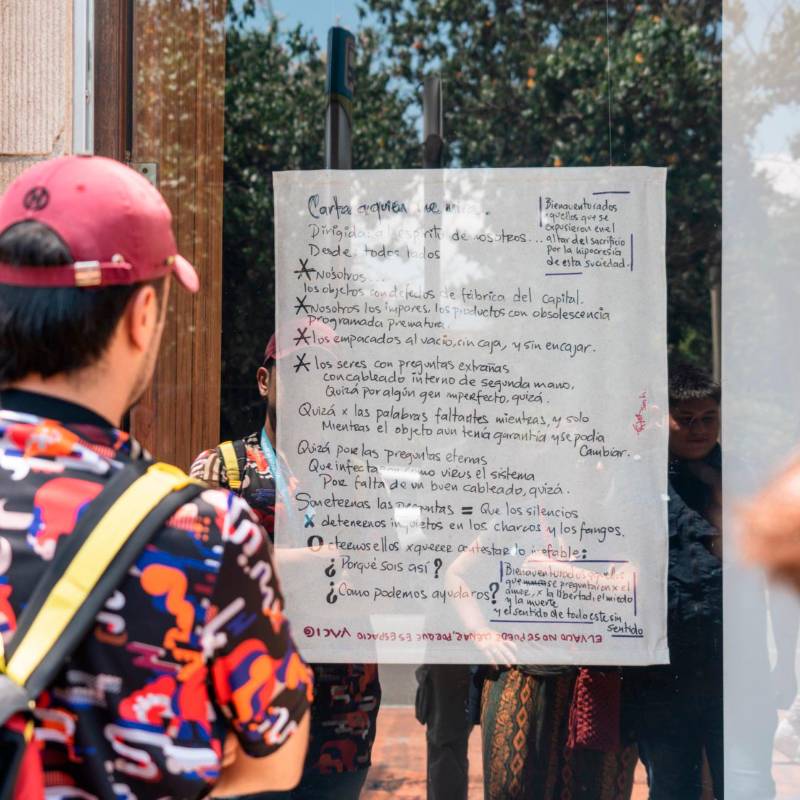 Carta a quien me mira..
Dirigida a espíritu de nosotros...
Desde todos lados
Bienaventurados
aquellos que se
expusieron en el
altar del sacrificio
por la hipocresía
de esta suciedad.
Nosotros...
los objetos con defectos de fábrica del capital.
Nosotros los impares, los productos con obsolescencia
Programada prematura.
los empacados al vacío, sin caja, y sin encajar.
los seres con preguntas extrañas
con cableado interno de segunda mano.
Quizá por algún gen imperfecto, quizá.
Quizá x las palabras faltantes mientras, y solo
Mientras el objeto aun tenía garantía y se podía
Cambiar.
Quizá por las preguntas eternas
Que infectan como virus el sistema
Por falta de un buen cableado, quizá.
Son eternas las preguntas = Que los silencios
x detenernos inquietos en los charcos y los fangos.
O eternos ellos x querer contestar lo inefable:
¿Porqué sois así?
¿Como podemos ayudaros?
Bienaventurados aquellos
que se preguntaron x el
amor, x la libertad, el miedo
y la muerte
y el sentido de todo este sin
sentido
EL VACIO NO SE PUEDE LLENAR, PORQUE ES ESPACIO VACIO